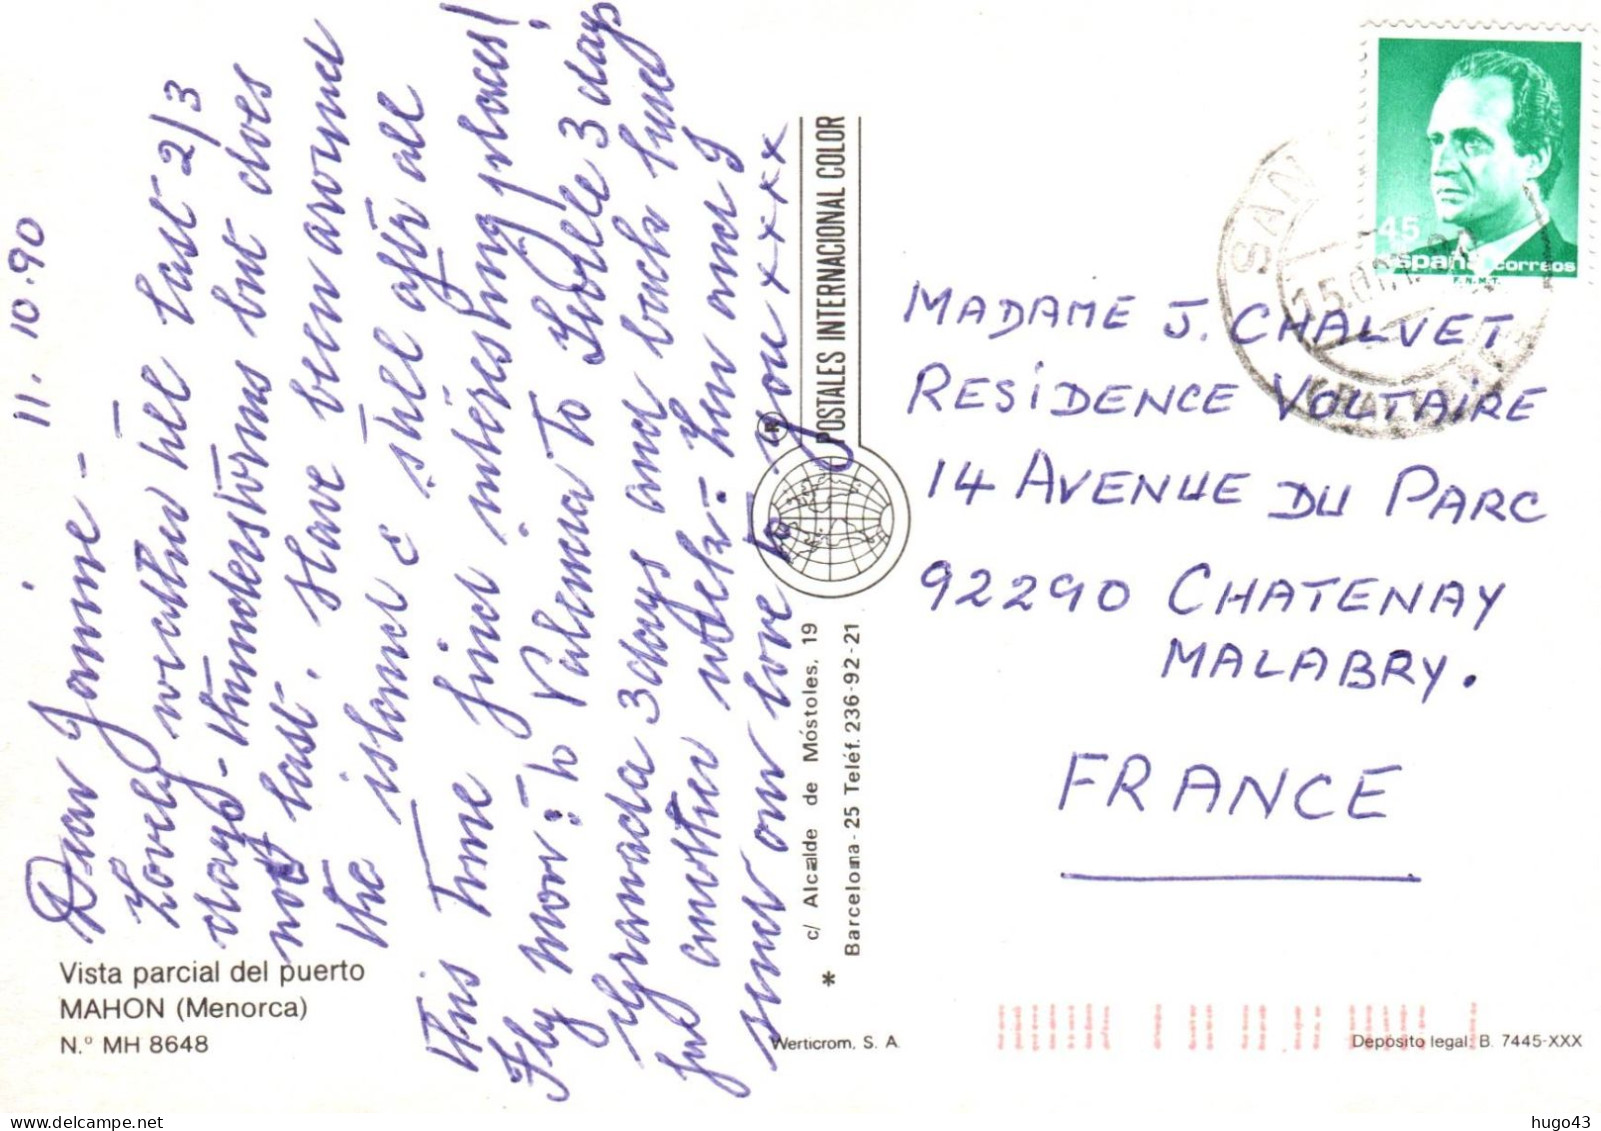 11.10.90
Dear Janine -
Lovely weather till last 2/3
days - thunderstorms but does
not last. Have been around
the island c still after all
this time find interesting places!
Fly mor: to Valencia to Seville 3 days
Granada 3 days and back here
for another week. Len and I
send our love to you xxxxx
Vista parcial del puerto
MAHON (Menorca)
N.º MH 8648
POSTALES INTERNACIONAL COLOR
®
* c/ Alcalde de Móstoles, 19
Barcelona - 25 Teléf. 236-92-21
Werticrom, S. A.
45
España correos
F.N.M.T.
SAN
MADAME J. CHALVET
RESIDENCE VOLTAIRE
14 AVENUE DU PARC
92290 CHATENAY
MALABRY.
FRANCE
Depósito legal: B. 7445-XXX
hugo43